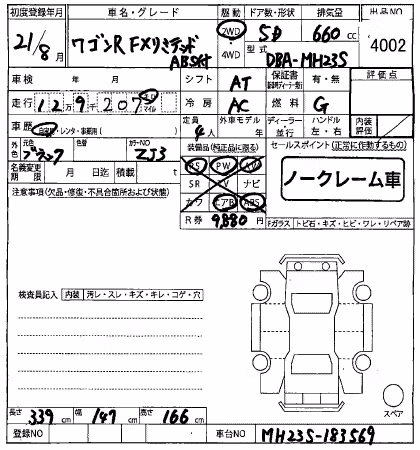 初度登録年月 車名・グレード 駆動 ドア数・形状 排気量 出品NO
21/8月 ワゴンR FXリミテッド ABS付 2WD・4WD 5D 660cc 4002
型式 DBA-MH23S
車検 年 月 シフト AT 保証書 有・無 評価点
走行 12万9千207 キロ マイル 冷房 AC 燃料 G
車歴 自家用・レンタ・事務用( ) 定員 4人 外車モデル 年 ディーラー・並行 ハンドル 左・右 内装評価
外色 元色 ブラック 色替 カラーNO ZJ3 装備品(純正品に限る) セールスポイント(正常に作動するもの)
名義変更期限 月 日迄 積載 t PS PW ノークレーム車
注意事項(欠品・修復・不具合箇所および状態) SR TV ナビ
カワ エアB ABS
R券 9,880円 Fガラス・トビ石・キズ・ヒビ・ワレ・リペア跡
検査員記入 内装 汚レ・スレ・キズ・キレ・コゲ・穴
スペア
長さ 339cm 幅 147cm 高さ 166cm
登録NO 車台NO MH23S-183569